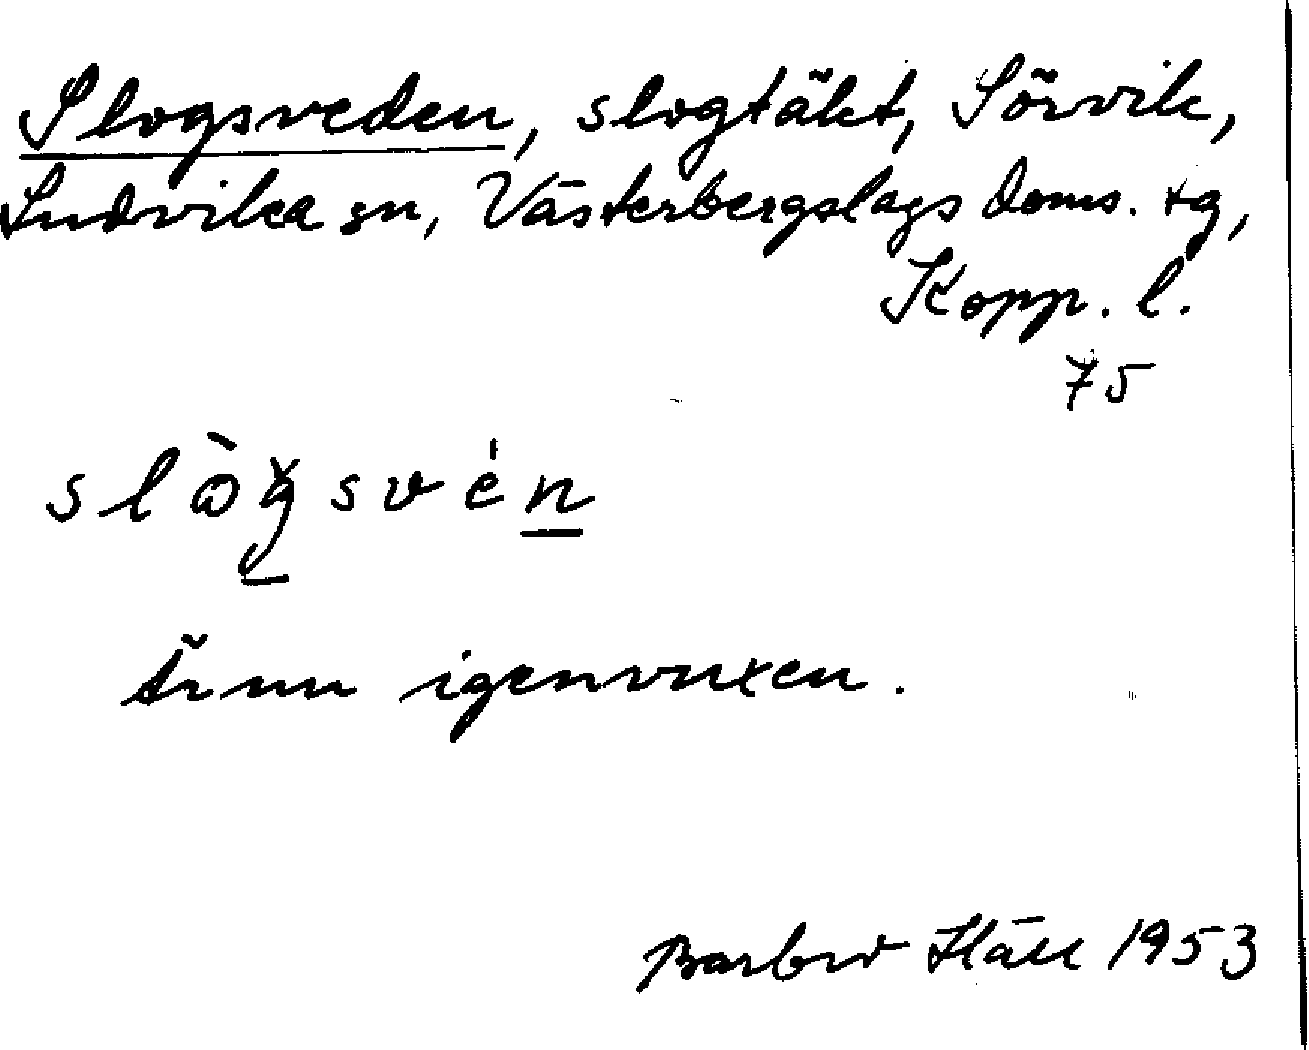 Slogsveden, slogtäkt, Sörvik,
Ludvika sn, Västerbergslags doms. tg,
Kopp. l.
75
slòg svén
Är nu igenvuxen.
Barbro 1953